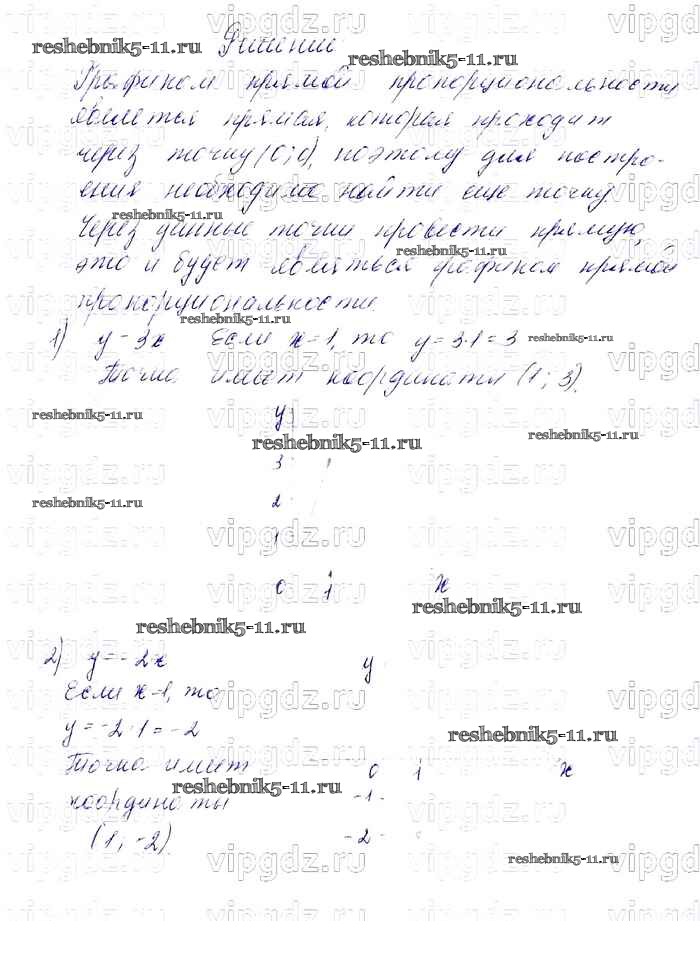 Решение
График­ом прямой пропорциональности
является прямая, которая проходит
через точку (0; 0), поэтому для постро-
ения необходимо найти еще точку
Через данные точки провести прямую,
это и будет являться графиком прямой
пропорциональности.
1) y = 3x Если x = 1, то y = 3·1 = 3
Точка имеет координаты (1; 3).
y
3
2
1
0 1 x
2) y = -2x
y
Если x=1, то
y = -2·1 = -2
Точка имеет
0 1 x
координаты
-1
(1; -2).
-2
reshebnik5-11.ru
vipgdz.ru